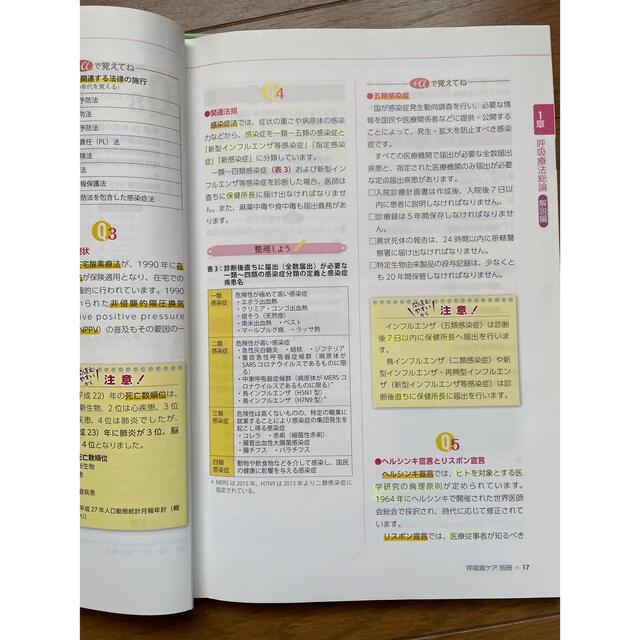 +αで覚えてね
関連する法律の施行
年代を覚える)
予防法
防法
予防法
責任 (PL) 法
険法
報保護法
防法を包含した感染症法
Q3
現状
宅酸素療法が、1990年に在
が保険適用となり、在宅での
極的に行われています。1990
いられた非侵襲的陽圧換気
ive positive pressure
NPPV) の普及もその要因の一
注意！
平成22) 年の死亡数順位は、
新生物、2位は心疾患、3位
疾患、4位は肺炎でしたが、
成23) 年に肺炎が3位、脳
4位となりました。
死亡数順位
新生物
管疾患
平成27年人口動態統計月報年計 (概
Q4
●関連法規
感染症法では、症状の重さや病原体の感染
力などから、感染症を一類〜五類の感染症と
「新型インフルエンザ等感染症」「指定感染
症」「新感染症」に分類しています。
一類〜四類感染症 (表3) および新型イン
フルエンザ等感染症を診断した場合、医師は
直ちに保健所長に届け出なければなりませ
ん。また、麻薬中毒や食中毒も届出義務があ
ります。
整理しよう
表3：診断後直ちに届出 (全数届出) が必要な
一類〜四類の感染症分類の定義と感染症
疾患名
一類
感染症
危険性が極めて高い感染症
・エボラ出血熱
・クリミア・コンゴ出血熱
・痘そう (天然痘)
・南米出血熱 ・ペスト
・マールブルグ病 ・ラッサ熱
二類
感染症
危険性が高い感染症
・急性灰白髄炎 ・結核 ・ジフテリア
・重症急性呼吸器症候群 (病原体が
SARSコロナウイルスであるものに限
る)
・中東呼吸器症候群 (病原体がMERSコ
ロナウイルスであるものに限る)*
・鳥インフルエンザ (H5N1型)
・鳥インフルエンザ (H7N9型)*
三類
感染症
危険性は高くないものの、特定の職業に
就業することにより感染症の集団発生を
起こし得る感染症
・コレラ ・赤痢 (細菌性赤痢)
・腸管出血性大腸菌感染症
・腸チフス ・パラチフス
四類
感染症
動物や飲食物などを介して感染し、国民
の健康に影響を与える感染症
* MERSは2015年、H7N9は2013年より二類感染症に
指定されている。
+αで覚えてね
●五類感染症
国が感染症発生動向調査を行い、必要な情
報を国民や医療関係者などに提供・公開する
ことによって、発生・拡大を防止すべき感染
症です。
すべての医療機関で届出が必要な全数届出
疾患と、指定された医療機関のみ届出が必要
な定点届出疾患があります。
□入院診療計画書は作成後、入院後7日以
内に患者に説明しなければなりません。
□診療録は5年間保存しなければなりませ
ん。
□異状死体の報告は、24時間以内に所轄警
察署に届け出なければなりません。
□特定生物由来製品の投与記録は、少なくと
も20年間保管しなければなりません。
注意！
インフルエンザ (五類感染症) は診断
後7日以内に保健所長へ届出を行いま
す。
鳥インフルエンザ (二類感染症) や新
型インフルエンザ・再興型インフルエン
ザ (新型インフルエンザ等感染症) は診
断後直ちに保健所長に届出を行います。
Q5
●ヘルシンキ宣言とリスボン宣言
ヘルシンキ宣言では、ヒトを対象とする医
学研究の倫理原則が定められています。
1964年にヘルシンキで開催された世界医師
会総会で採択され、時代に応じて修正されて
います。
リスボン宣言では、医療従事者が知るべき
1章
呼吸療法総論
解説編
呼吸器ケア 別冊 ● 17